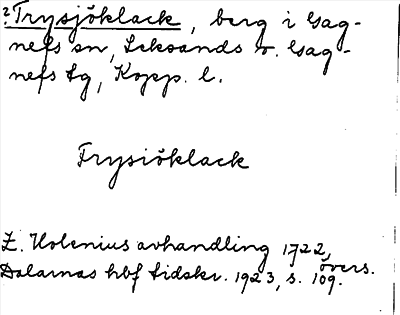 ?Trysjöklack, berg i Gag-
nefs sn, Leksands o. Gag-
nefs tg, Kopp. l.
Trysiöklack
E. Holenius avhandling 1722, övers.
Dalarnas hbf tidskr. 1923, s. 109.